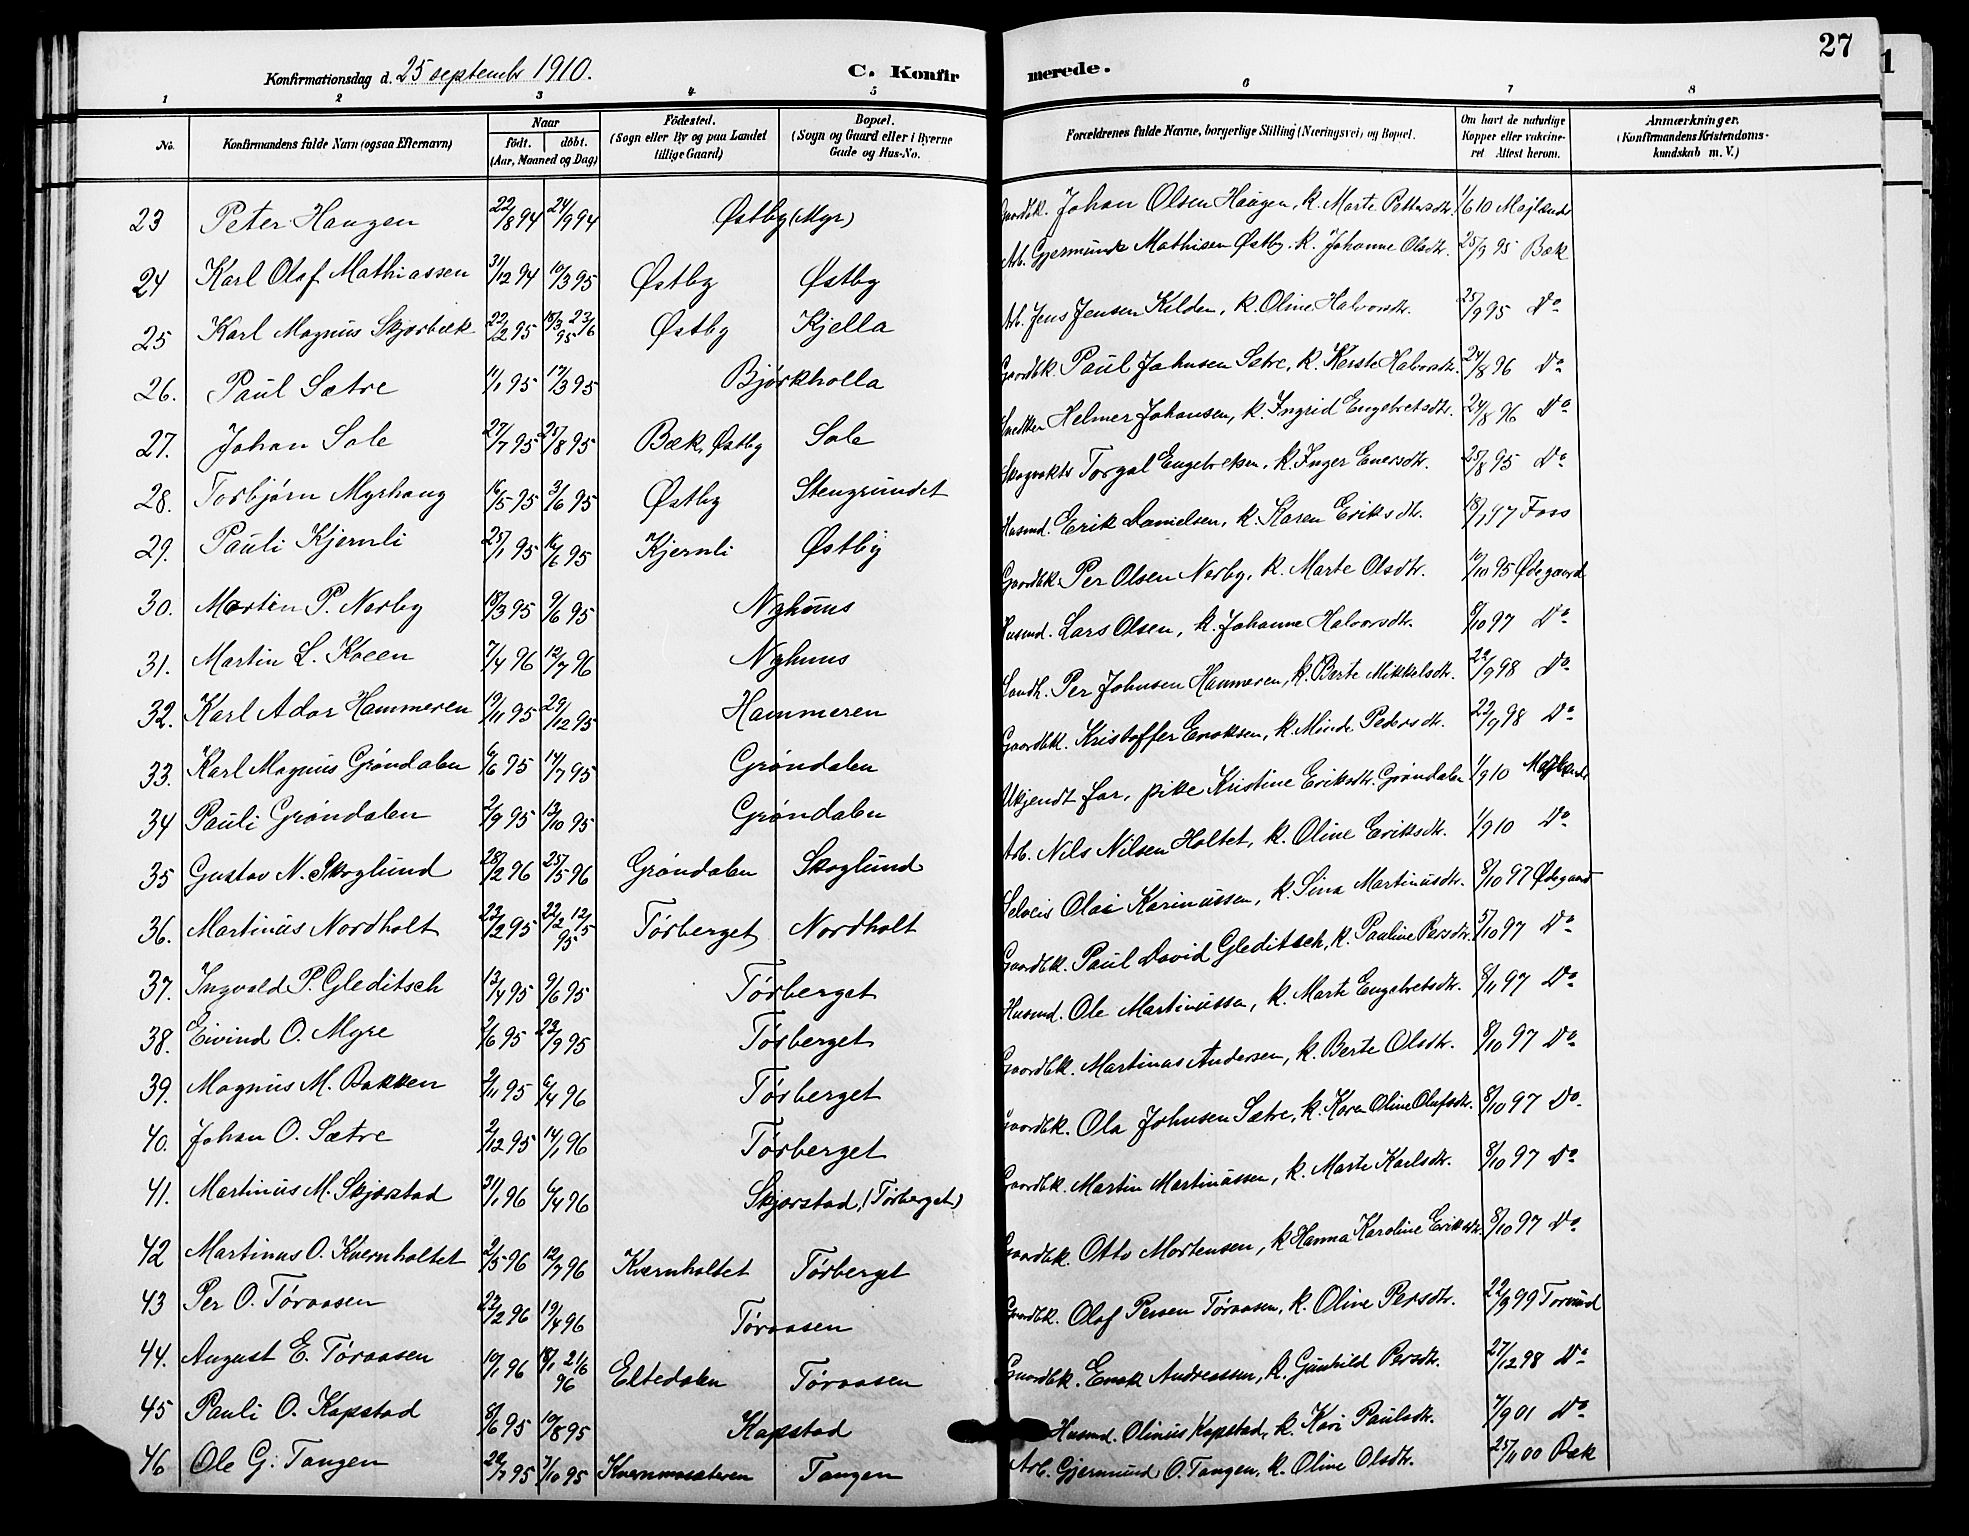 27
Konfirmationsdag d. 25 septembr 1910. C. Konfirmerede.
1 2 3 4 5 6 7 8
No. Konfirmandens fulde Navn (ogsaa Efternavn) Naar født. døbt. (Aar, Maaned og Dag) Födested. (Sogn eller By og paa Landet tillige Gaard) Bopæl. (Sogn og Gaard eller i Byerne Gade og Hus-No. Forældrenes fulde Navne, borgerlige Stilling (Næringsvei) og Bopæl. Om havt de naturlige Kopper eller vaksineret Attest herom. Anmærkninger. (Konfirmandens Kristendomskundskab m. V.)
23 Peter Haugen 22/8 94 24/9 94 Østby (Myr) Gaardbk. Johan Olsen Haugen, k. Marte Pettersdtr. 1/6 10 Mejlænder
24 Karl Olaf Mathiassen 31/12 94 10/3 95 Østby Østby Arb. Gjermund Mathisen Østby. k. Johanne Olsdtr. 25/9 95 Bæk
25 Karl Magnus Skjærbæk 22/2 95 18/3 23/6 95 Østby Kjølla Arb. Jens Jensen Kilden, k. Oline Halvorsdtr. 25/9 95 Do
26. Paul Sætre 11/1 95 17/3 95 Bjørkholla Gaardbk. Paul Johnsen Sætre, k. Kerste Halvorsdtr. 24/8 96 Do
27. Johan Sole 27/7 95 25/8 95 Bæk, Østby Sole Snedker Helmer Johansen, k. Ingrid Engebretsdtr. 24/8 96 Do
28. Torbjørn Myrhaug 16/5 95 3/6 95 Østby Stengrundet Skogvokter Torgal Engebretsen, k. Inger Enersdtr. 25/8 95 Do
29. Pauli Kjernli 25/1 95 16/6 95 Kjernli Østby Husmd. Erik Danielsen, k. Karen Eriksdtr. 18/1 97 Foss
30. Martin P. Nerby 18/3 95 9/6 95 Nyhuus Gaardbk. Per Olsen Nerby, k. Marte Olsdtr. 10/10 95 Ødegaard
31. Martin L. Koeen 7/4 96 12/7 96 Nyhuus Husmd. Lars Olsen, k. Johanne Halvorsdtr. 8/10 97 Do
32. Karl Ador Hammeren 19/11 95 29/12 95 Hammeren Landh. Per Johnsen Hammeren, k. Berte Mikkelsdtr. 22/9 98 Do
33. Karl Magnus Grøndalen 6/6 95 14/7 95 Grøndalen Gaardbk. Kristoffer Enoksen, k. Minde Pedersdtr. 22/9 98 Do
34 Pauli Grøndalen 2/9 95 13/10 95 Grøndalen Ukjendt far, pike Kristine Eriksdtr. Grøndalen 1/9 10 Mejlænder
35 Gustav N. Skoglund 28/2 96 25/5 96 Grøndalen Skoglund Arb. Nils Nilsen Holtet, k. Oline Eriksdtr. 1/9 10 Do
36. Martinus Nordholt 23/2 95 22/2 12/5 95 Tørberget Nordholt Selveier Olai Karinussen, k. Sina Martinusdtr. 8/10 97 Ødegaard
37. Ingvald P. Gleditsch 13/4 95 9/6 95 Tørberget Gaardbk. Paul David Gleditsch, k. Pauline Persdtr. 5/10 97 Do
38. Eivind O. Myre 2/6 95 23/9 95 Tørberget Husmd. Ole Martinussen, k. Marte Engebretsdtr. 8/11 97 Do
39. Magnus M. Bakken 2/11 95 6/4 96 Tørberget Gaardbk. Martinus Andersen, k. Berte Olsdtr. 8/10 97 Do
40. Johan O. Sætre 2/12 95 14/1 96 Tørberget Gaardbk. Ola Johnsen Sætre, k. Karen Oline Olufsdtr. 8/10 97 Do
41. Martinus M. Skjærstad 31/1 96 6/4 96 Skjærstad, (Tørberget) Gaardbk. Martin Martinussen, k. Marte Karlsdtr. 8/10 97 Do
42 Martinus O. Kvernholtet 2/5 96 12/7 96 Kvernholtet Tørberget Gaardbk. Otto Mortensen, k Hanna Karoline Eriksdtr. 8/10 97 Do
43 Per O. Tøraasen 23/2 96 19/4 96 Tøraasen Gaardbk. Olaf Persen Tøraasen, k. Oline Persdtr. 22/9 99 Torvund
44. August E. Tøraasen 10/1 96 18/1 21/6 96 Eltedalen Tøraasen Gaardbk. Enok Andreassen, k. Gunhild Persdtr. 27/12 98 Do
45 Pauli O. Kapstad 8/6 95 10/8 95 Kapstad Husmd. Olinus Kapstad, k. Kari Paulsdtr. 7/9 01 Do
46 Ole G. Tangen 22/7 95 7/10 95 Kvernmosæteren Tangen Arb. Gjermund O. Tangen, k. Oline Olsdtr. 25/11 00 Bæk